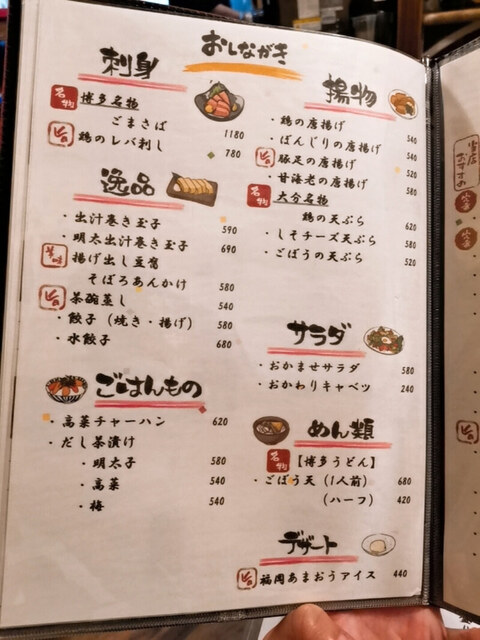 おしながき
刺身
名物 博多名物
ごまさば 1180
旨 鶏のレバ刺し 780
逸品
・出汁巻き玉子 590
・明太出汁巻き玉子 690
揚げ出し豆腐
そぼろあんかけ 580
旨 茶碗蒸し 540
・餃子（焼き・揚げ） 580
・水餃子 680
ごはんもの
・高菜チャーハン 620
・だし茶漬け
・明太子 580
・高菜 540
・梅 540
揚物
・鶏の唐揚げ 540
・ぼんじりの唐揚げ 540
旨 豚足の唐揚げ 520
・甘海老の唐揚げ 580
名物 大分名物
鶏の天ぷら 620
・しそチーズ天ぷら 580
・ごぼうの天ぷら 520
サラダ
・おかませサラダ 580
・おかわりキャベツ 240
めん類
名物 【博多うどん】
・ごぼう天（1人前） 680
（ハーフ） 420
デザート
旨 福岡あまおうアイス 440
当店
おすすめ
旨